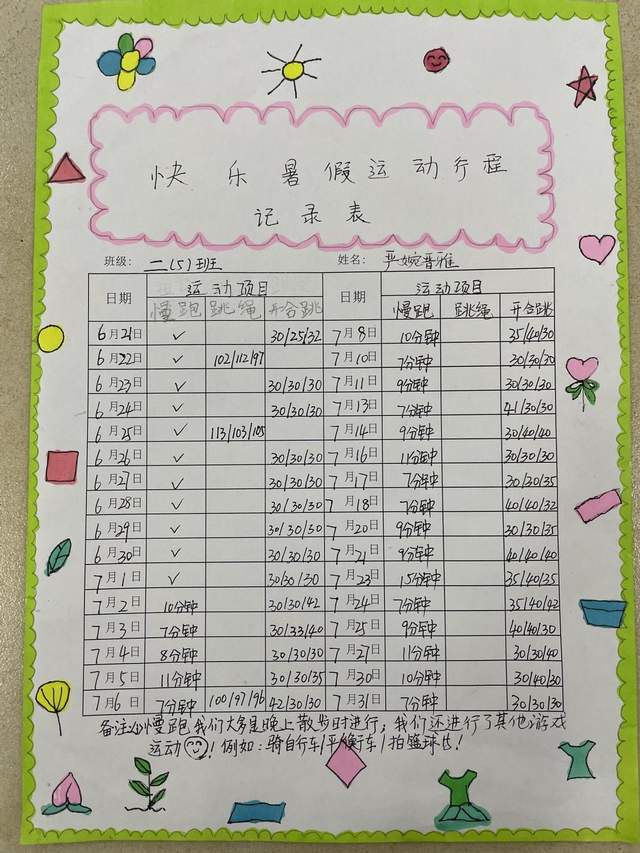 快乐暑假运动行程
记录表
班级: 二(5)班 姓名: 严婉晋雅
日期 运动项目 日期 运动项目
慢跑 跳绳 开合跳 慢跑 跳绳 开合跳
6月21日 ✓ 30/25/32 7月8日 10分钟 35/40/30
6月22日 ✓ 102/112/97 7月10日 7分钟 30/30/30
6月23日 ✓ 30/30/30 7月11日 9分钟 30/30/30
6月24日 ✓ 30/30/30 7月13日 7分钟 41/30/30
6月25日 ✓ 113/103/105 7月14日 9分钟 30/40/40
6月26日 ✓ 30/30/30 7月16日 11分钟 30/30/30
6月27日 ✓ 30/30/30 7月17日 7分钟 30/30/35
6月28日 ✓ 30/30/30 7月18日 7分钟 40/40/32
6月29日 ✓ 30/30/30 7月20日 9分钟 30/30/35
6月30日 ✓ 30/30/30 7月21日 9分钟 40/40/40
7月1日 ✓ 30/30/30 7月23日 15分钟 35/40/35
7月2日 10分钟 30/30/42 7月24日 7分钟 35/40/42
7月3日 7分钟 30/33/40 7月25日 9分钟 40/40/30
7月4日 8分钟 30/30/30 7月27日 11分钟 30/30/40
7月5日 11分钟 30/30/35 7月30日 10分钟 30/40/30
7月6日 7分钟 100/97/96 42/30/30 7月31日 7分钟 30/30/30
备注:慢跑我们大多是晚上散步时进行;我们还进行了其他游戏
运动!例如:骑自行车/平衡车/拍篮球□!